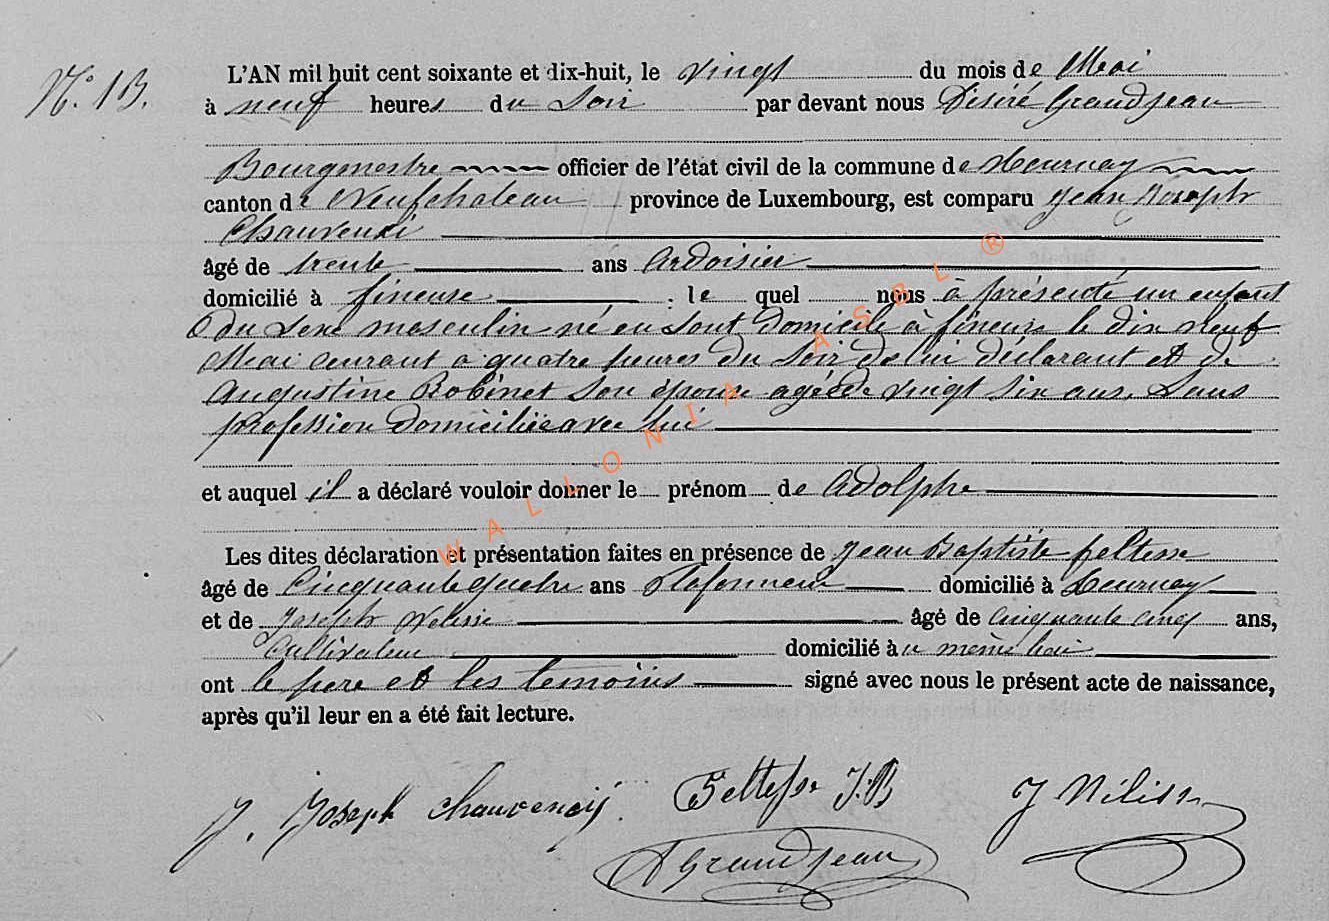 N.° 13.
L'AN mil huit cent soixante et dix-huit, le vingt du mois de Mai
à neuf heures du Soir par devant nous Désiré Grandjean
Bourgmestre officier de l'état civil de la commune de Tournay
canton de Neufchateau province de Luxembourg, est comparu Jean Joseph
Chauvenci
âgé de trente ans Ardoisier
domicilié à fineuse ; le quel nous à présenté un enfant
du Sexe masculin né en sont domicile à fineuse le dix neuf
Mai courant a quatre heures du Soir de lui déclarant et de
Augustine Robinet Son épouse agée de vingt six ans, Sans
profession domiciliée avec lui
et auquel il a déclaré vouloir donner le prénom de Adolphe
Les dites déclaration et présentation faites en présence de Jean Baptiste feltesse
âgé de Cinquante quatre ans Plafonneur domicilié à Tournay
et de Joseph Nelisse âgé de cinquante cinq ans,
Cultivateur domicilié au même lieu
ont le père et les temoins signé avec nous le présent acte de naissance,
après qu'il leur en a été fait lecture.
J. Joseph chauvencij. Feltesse J.B J Nélisse
D Grandjean
WALLONIA ASBL ®